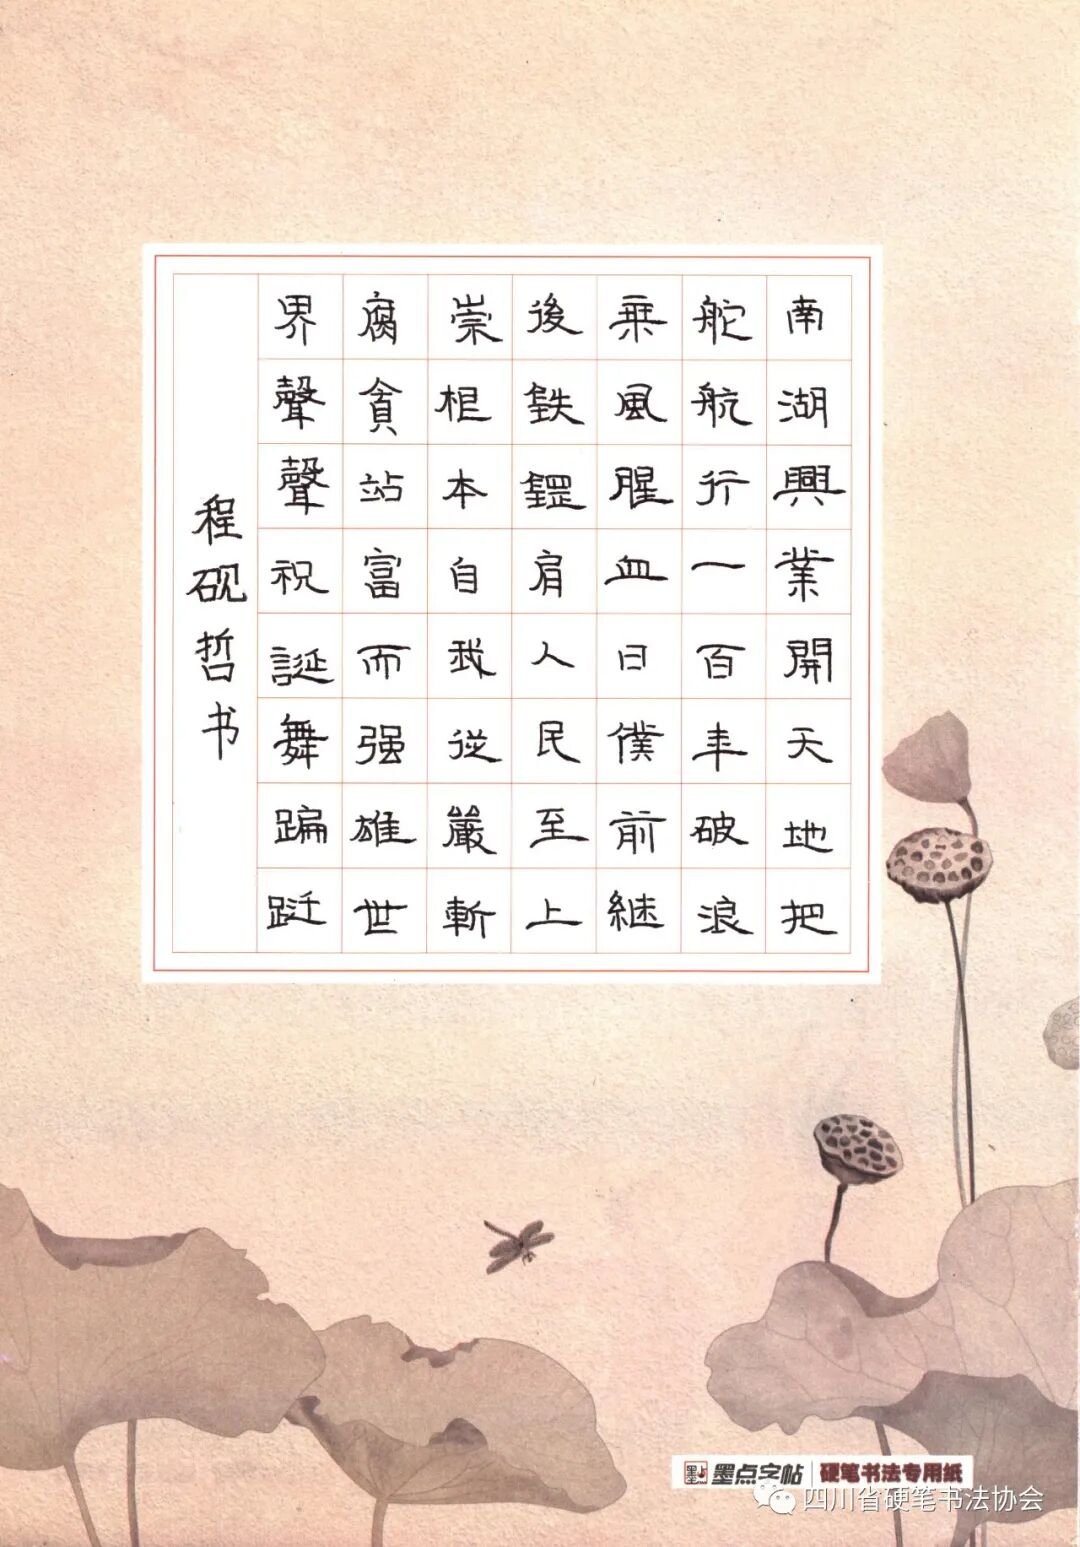 南湖興業開天地把
舵航行一百年破浪
乘風腥血日僕前継
後鉄肩人民至上
崇根本自我從嚴斬
腐貪站富而强雄世
界聲聲祝誕舞蹁跹
程砚哲书
墨点字帖 硬笔书法专用纸
四川省硬笔书法协会